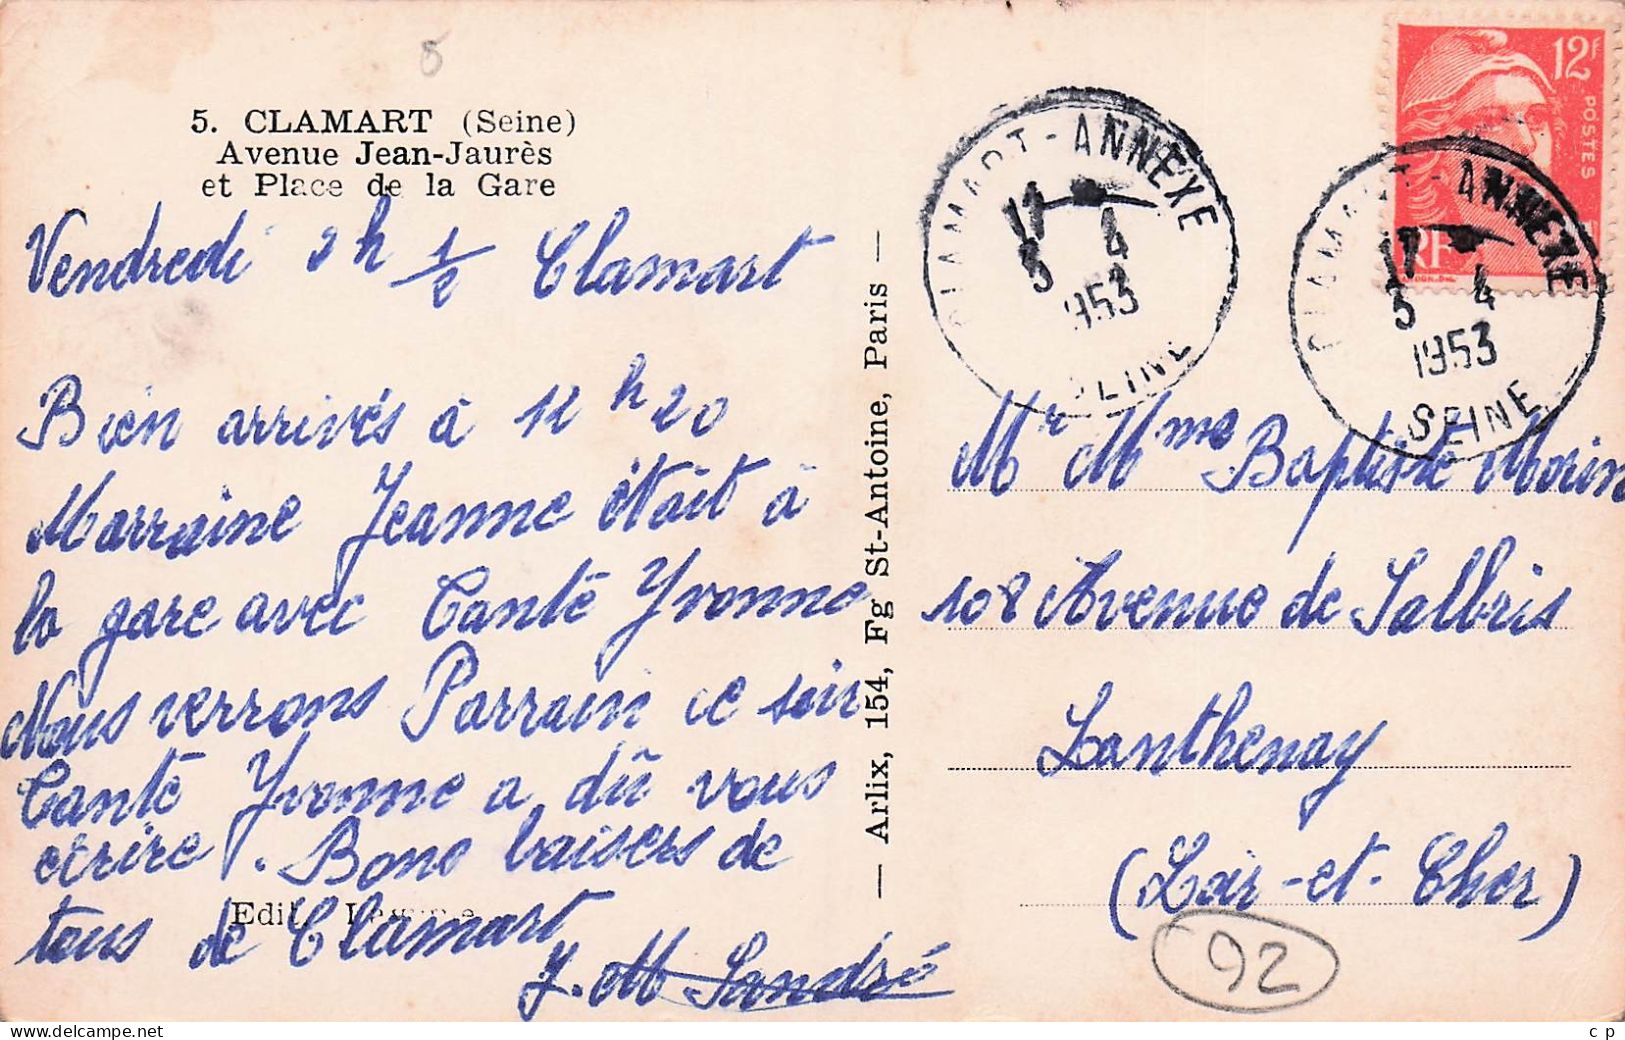 5. CLAMART (Seine)
Avenue Jean-Jaurès
et Place de la Gare
Vendredi 2h 1/2 Clamart
Bien arrivés à 12 h 20
Marraine Jeanne était à
la gare avec Tante Yvonne
Nous verrons Parrain ce soir
Tante Yvonne a dû vous
écrire. Bons baisers de
tous de Clamart
J. M Sandré
Edit.
— Arlix, 154, Fg St-Antoine, Paris —
CLAMART-ANNEXE
17
3 4
1953
SEINE
12F
POSTES
RF
CLAMART-ANNEXE
17
3 4
1953
SEINE
Mr Mme Baptiste Morin
108 Avenue de Salbris
Lanthenay
(Loir-et-Cher)
92
www.delcampe.net
c p